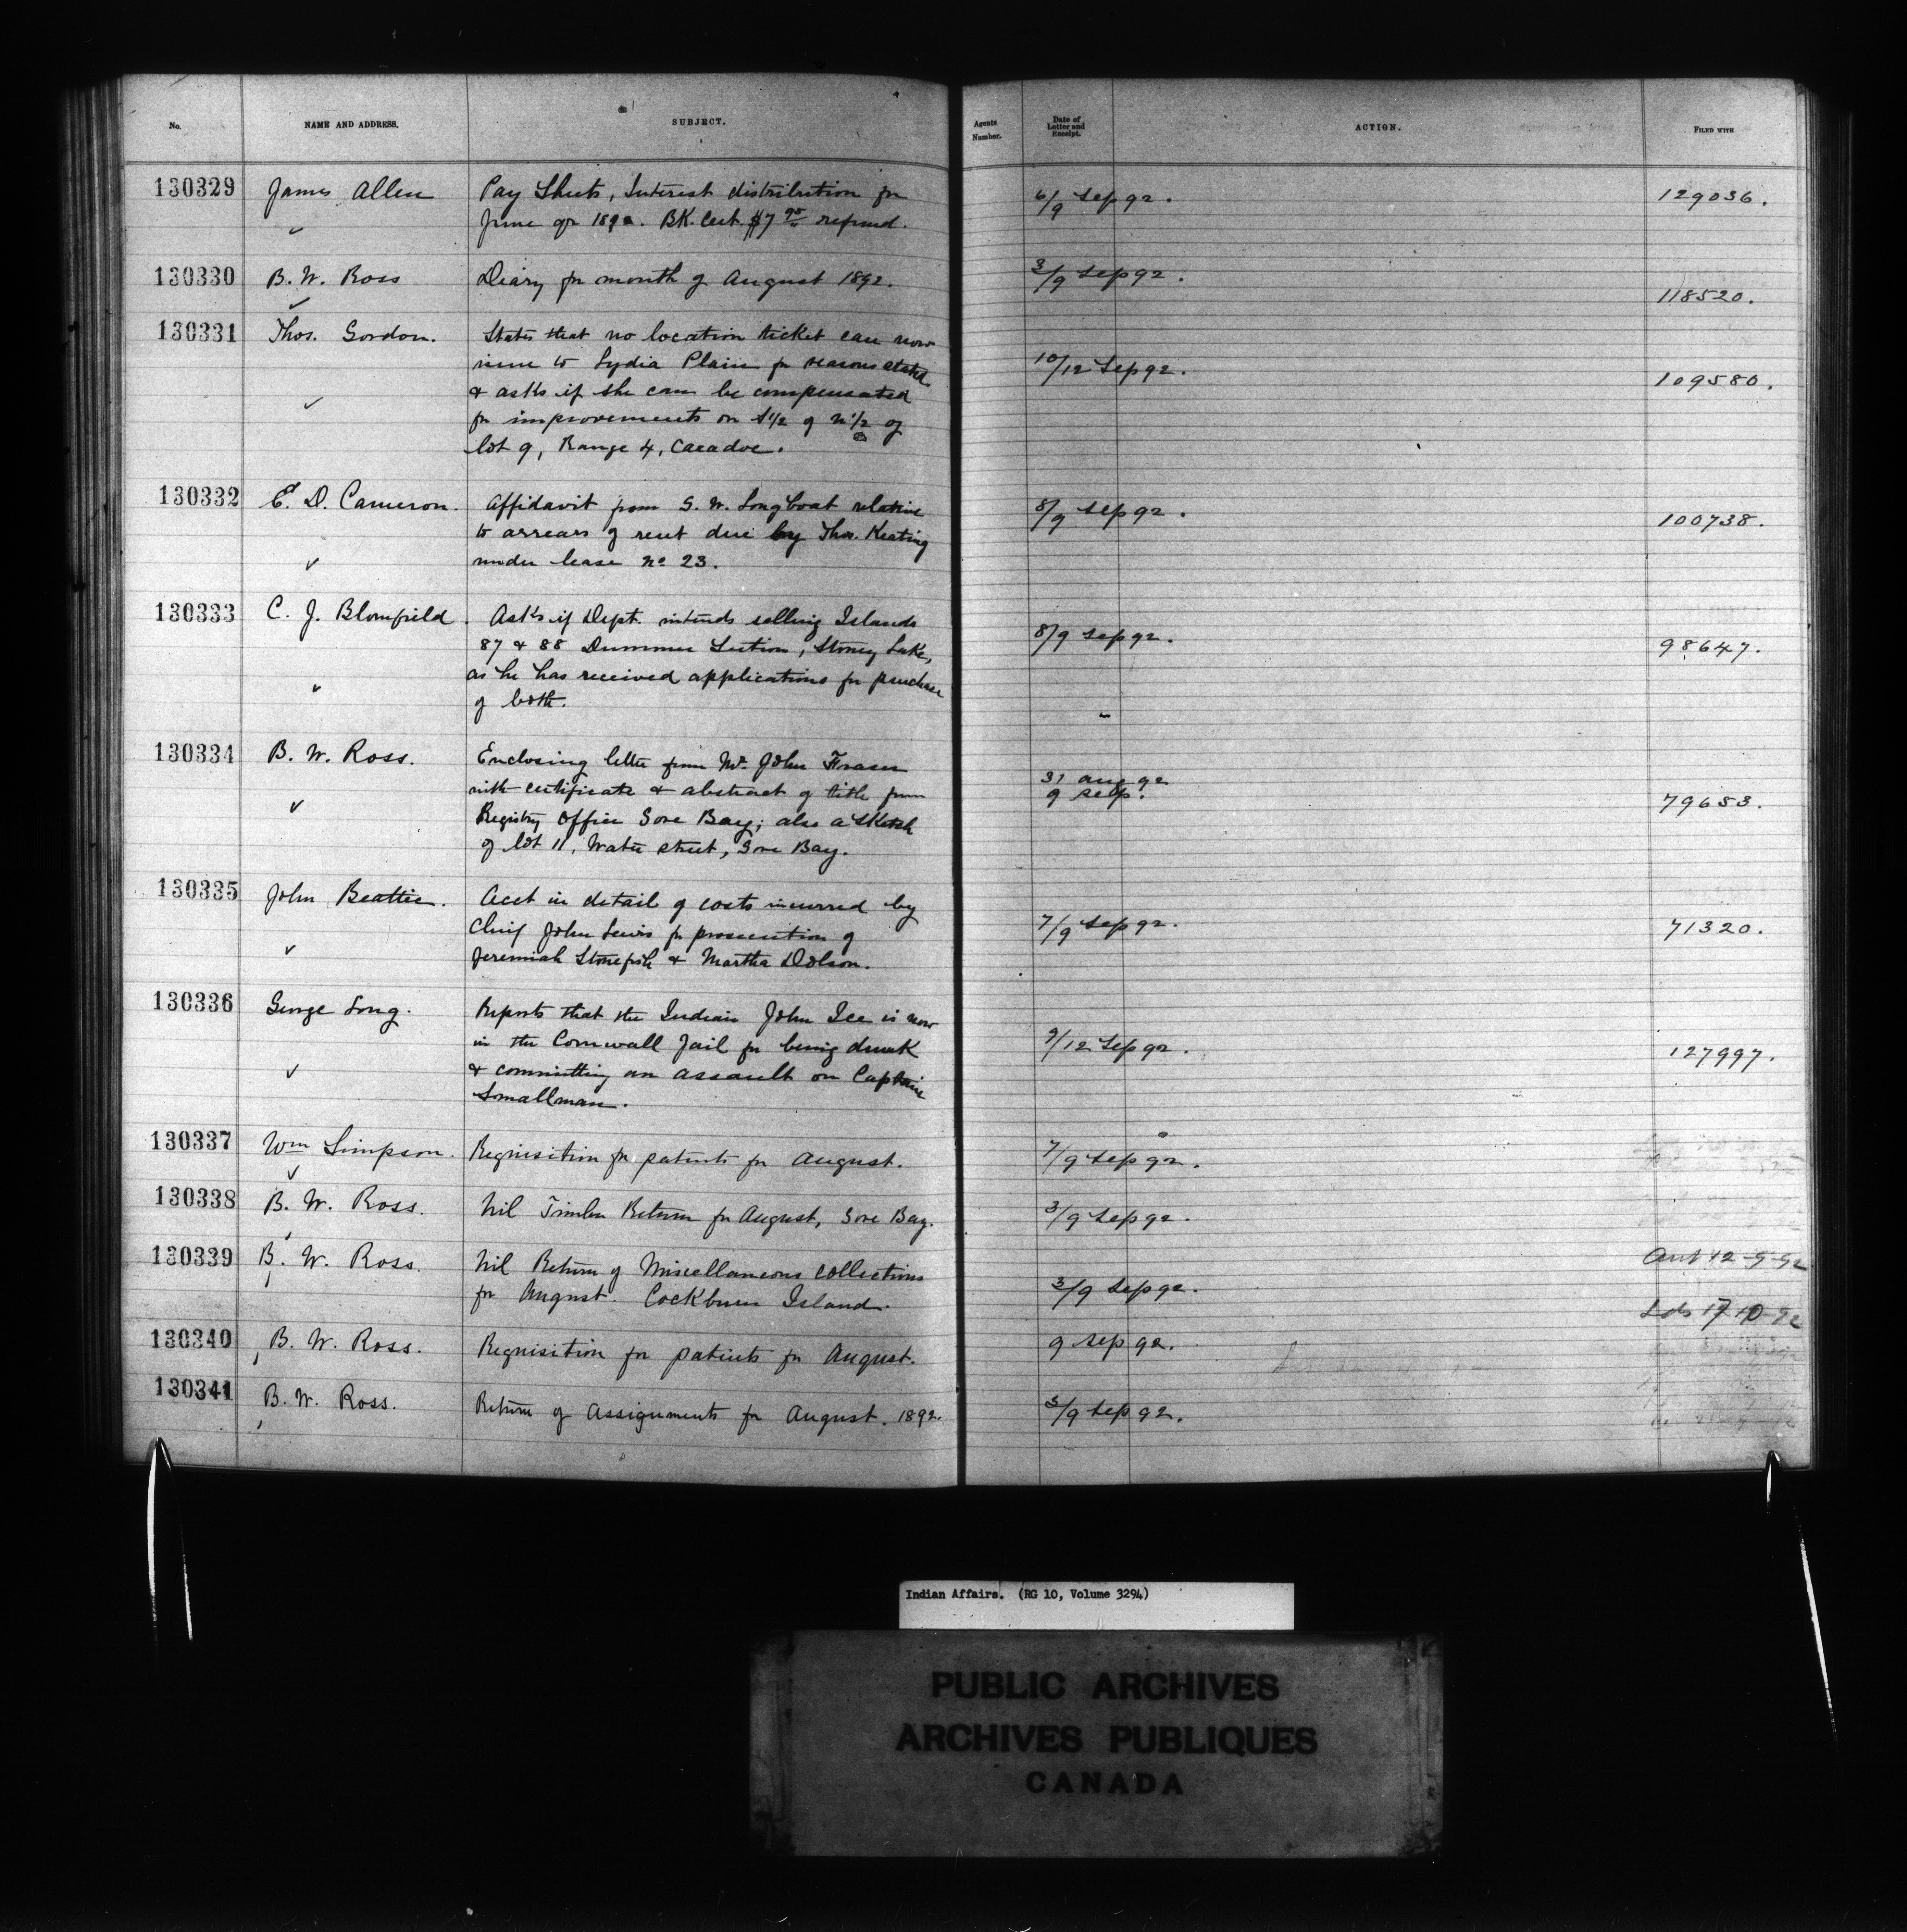 No. NAME AND ADDRESS. SUBJECT. Agents Number. Date of Letter and Receipt. ACTION. FILED WITH
130329 James Allen Pay Sheets, Interest distribution for 6/9 Sep 92. 129036.
June qr 1892. BK. Cert. $7 refund.
130330 B. W. Ross Diary for month of August 1892. 3/9 Sep 92. 118520.
130331 Thos. Gordon. States that no location ticket can now
issue to Lydia Plain for reasons stated 10/12 Sep 92. 109580.
& asks if she can be compensated
for improvements on S 1/2 of N 1/2 of
lot 9, Range 4, Caradoc.
130332 E. D. Cameron. Affidavit from G. W. Longboat relative 8/9 Sep 92. 100738.
to arrears of rent due by Thos. Keating
under lease No 23.
130333 C. J. Blomfield. Asks if Dept. intends selling Islands
87 & 88 Dummer Section, Stoney Lake, 8/9 Sep 92. 98647.
as he has received applications for purchase
of both.
130334 B. W. Ross. Enclosing letter from Mr. John Fraser
with certificate & abstract of title from 31 Aug 92
9 Sep. 79653.
Registry Office Gore Bay; also a sketch
of lot 11, Water street, Gore Bay.
130335 John Beattie. Acct in detail of costs incurred by
Chief John Lewis for prosecution of 7/9 Sep 92. 71320.
Jeremiah Stonefish & Martha Dolson.
130336 George Long. Reports that the Indian John Ice is now
in the Cornwall Jail for being drunk 9/12 Sep 92. 127997.
& committing an assault on Captain
Smallman.
130337 Wm Simpson. Requisition for patents for August. 7/9 Sep 92.
130338 B. W. Ross. Nil Timber Return for August, Gore Bay. 3/9 Sep 92.
130339 B. W. Ross. Nil Return of Miscellaneous collections 12-9-92
for August. Cockburn Island. 3/9 Sep 92.
Lds 17 10 92
130340 B. W. Ross. Requisition for patents for August. 9 Sep 92.
130341 B. W. Ross. Return of Assignments for August. 1892. 3/9 Sep 92.
Indian Affairs. (RG 10, Volume 3294)
PUBLIC ARCHIVES
ARCHIVES PUBLIQUES
CANADA